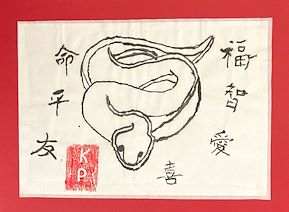 福智愛
喜
命平友
K
P